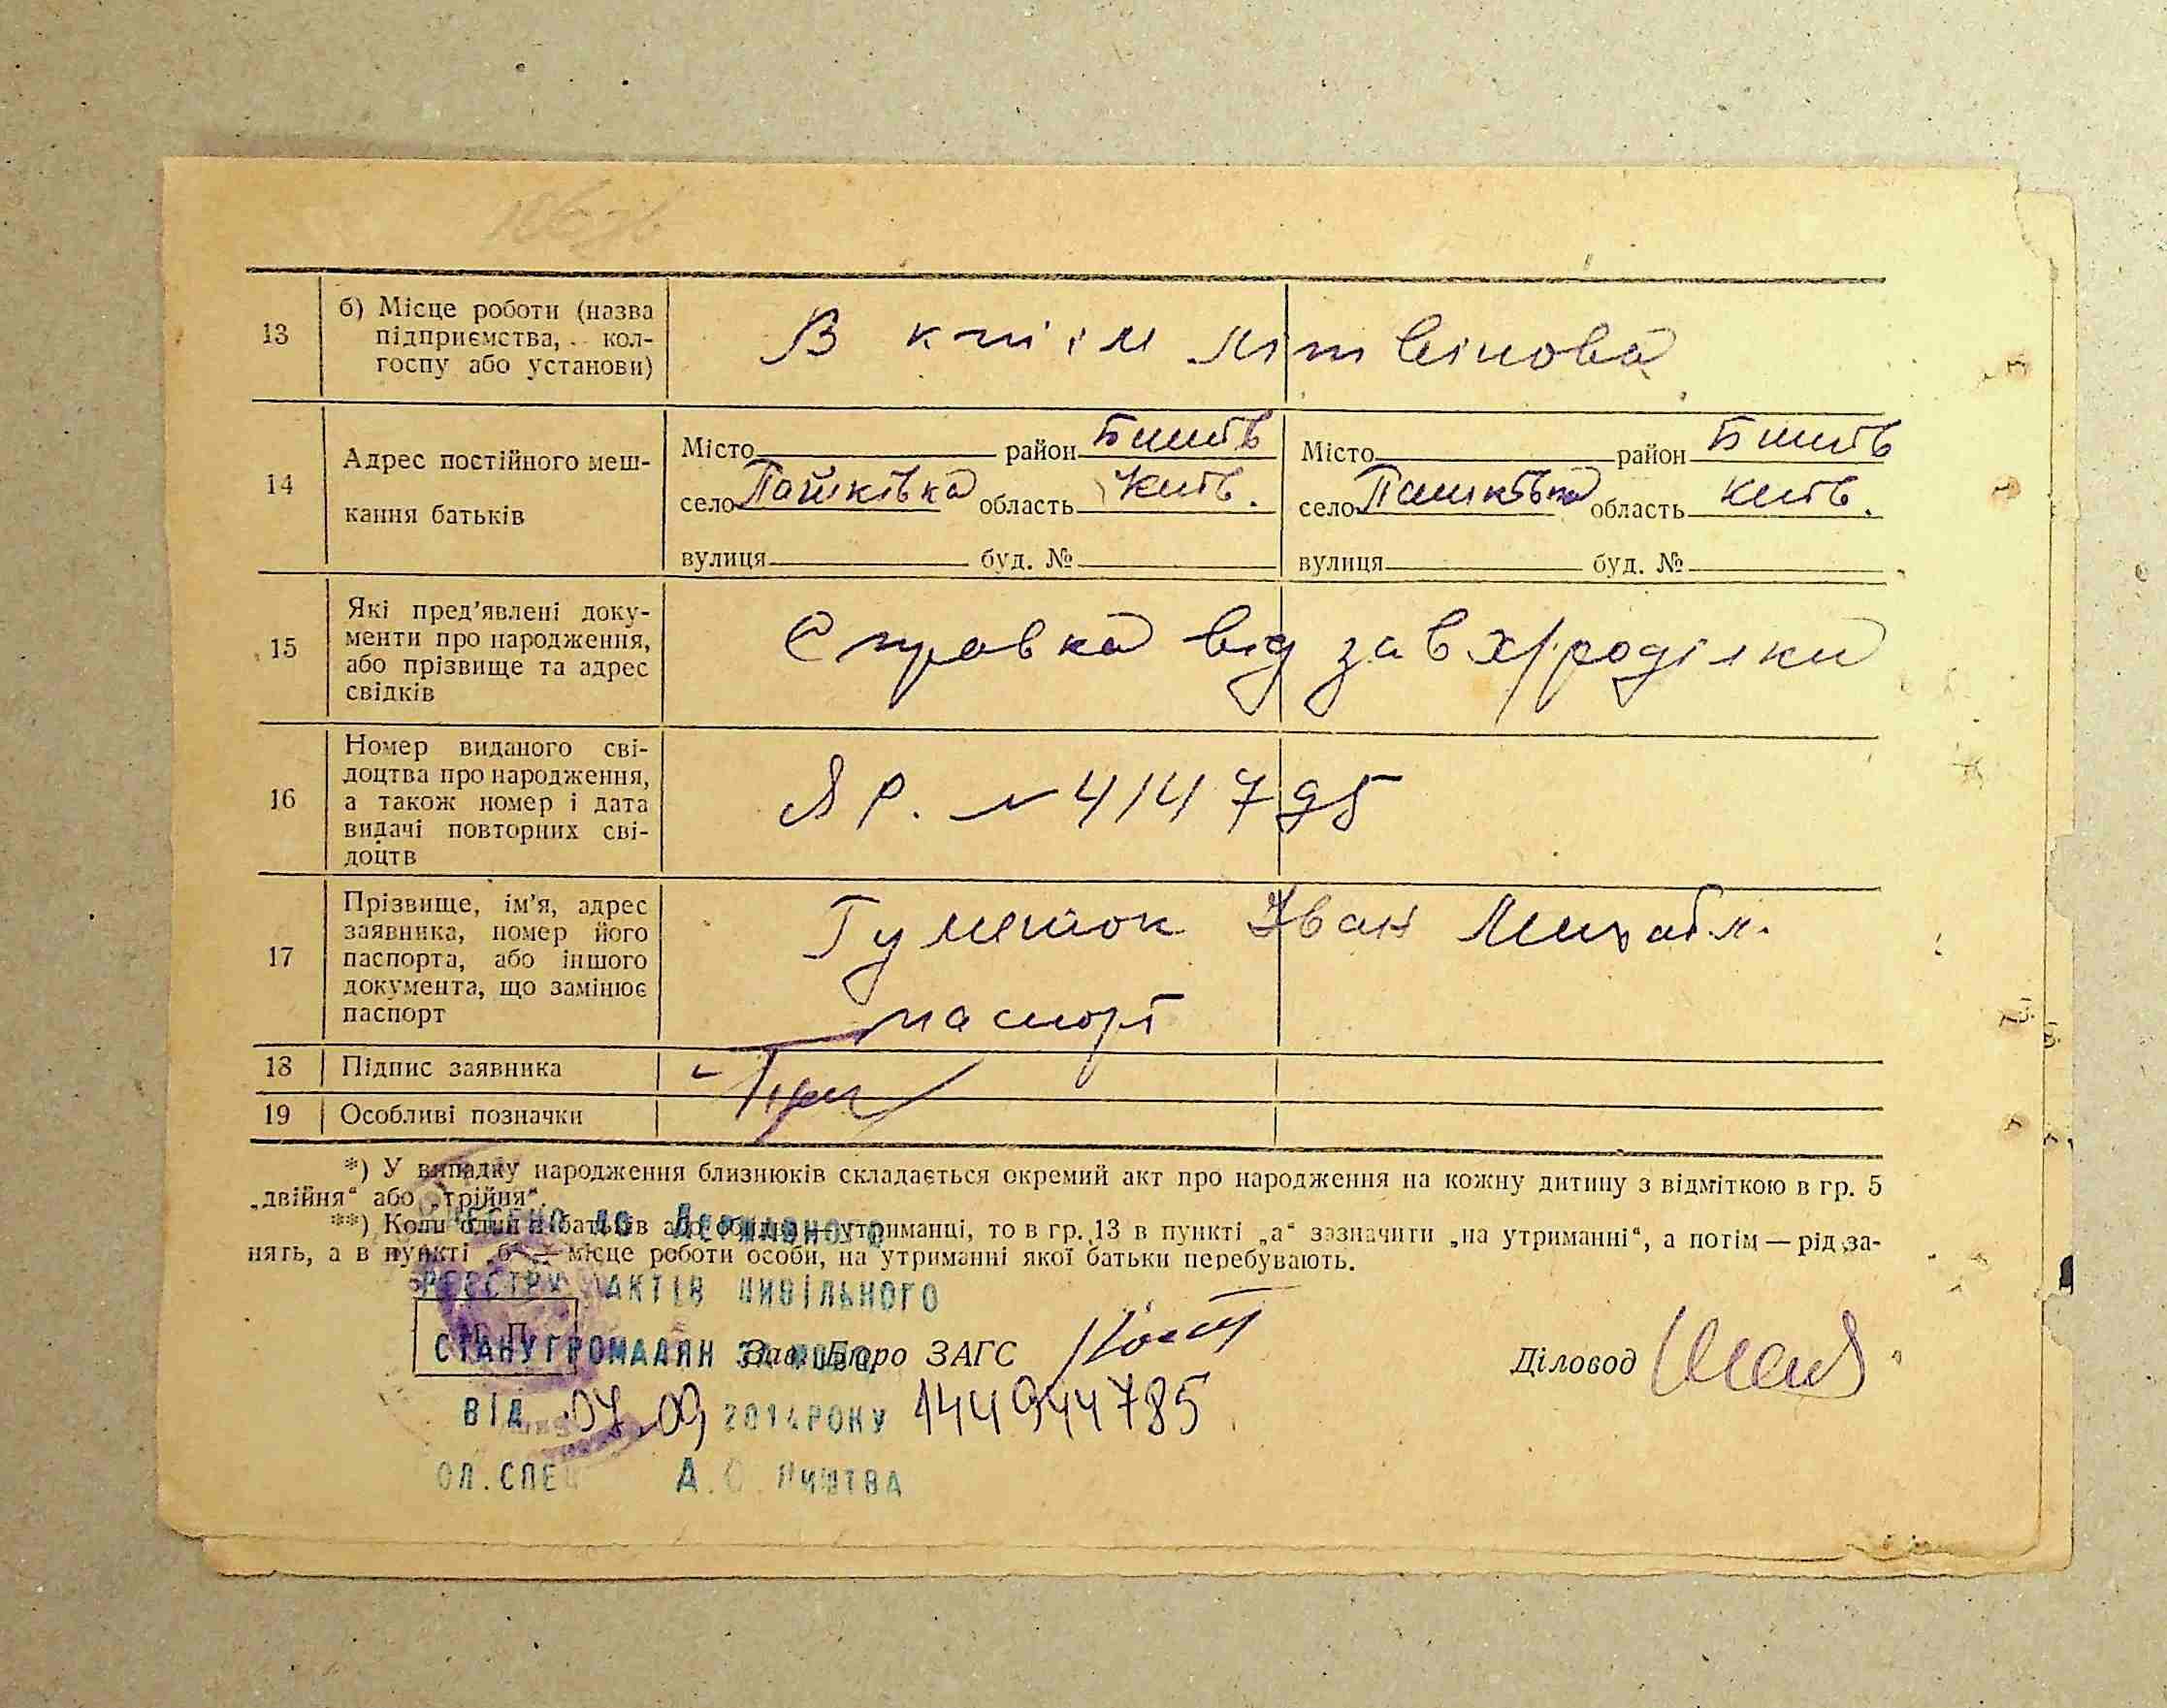 13
б) Місце роботи (назва
підприємства, кол-
госпу або установи)
В к-т ім Літвінова
14
Адрес постійного меш-
кання батьків
Місто район Бишів
село Пашківка область Київ.
вулиця буд. №
Місто район Бишів
село Пашківка область Київ.
вулиця буд. №
15
Які пред'явлені доку-
менти про народження,
або прізвище та адрес
свідків
Справка від зав х/роділки
16
Номер виданого сві-
доцтва про народження,
а також номер і дата
видачі повторних сві-
доцтв
ЯР. № 414795
17
Прізвище, ім'я, адрес
заявника, номер його
паспорта, або іншого
документа, що замінює
паспорт
Гуменюк Іван Михайл.
паспорт
18
Підпис заявника
19
Особливі позначки
*) У випадку народження близнюків складається окремий акт про народження на кожну дитину з відміткою в гр. 5
„двійня“ або „трійня“.
**) Коли один з батьків або обидва — утриманці, то в гр. 13 в пункті „а“ зазначити „на утриманні“, а потім — рід за-
нять, а в пункті „б“ — місце роботи особи, на утриманні якої батьки перебувають.
ВНЕСЕНО ДО ДЕРЖАВНОГО
РЕЄСТРУ АКТІВ ЦИВІЛЬНОГО
СТАНУ ГРОМАДЯН ЗА №
М. П.
Зав. Бюро ЗАГС
Діловод
ВІД 07.09 2014 РОКУ 144944785